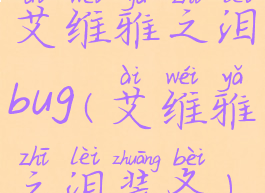 ài wéi yǎ zhī lèi
艾维雅之泪
ài wéi yǎ
bug(艾维雅
zhī lèi zhuāng bèi
之泪装备)